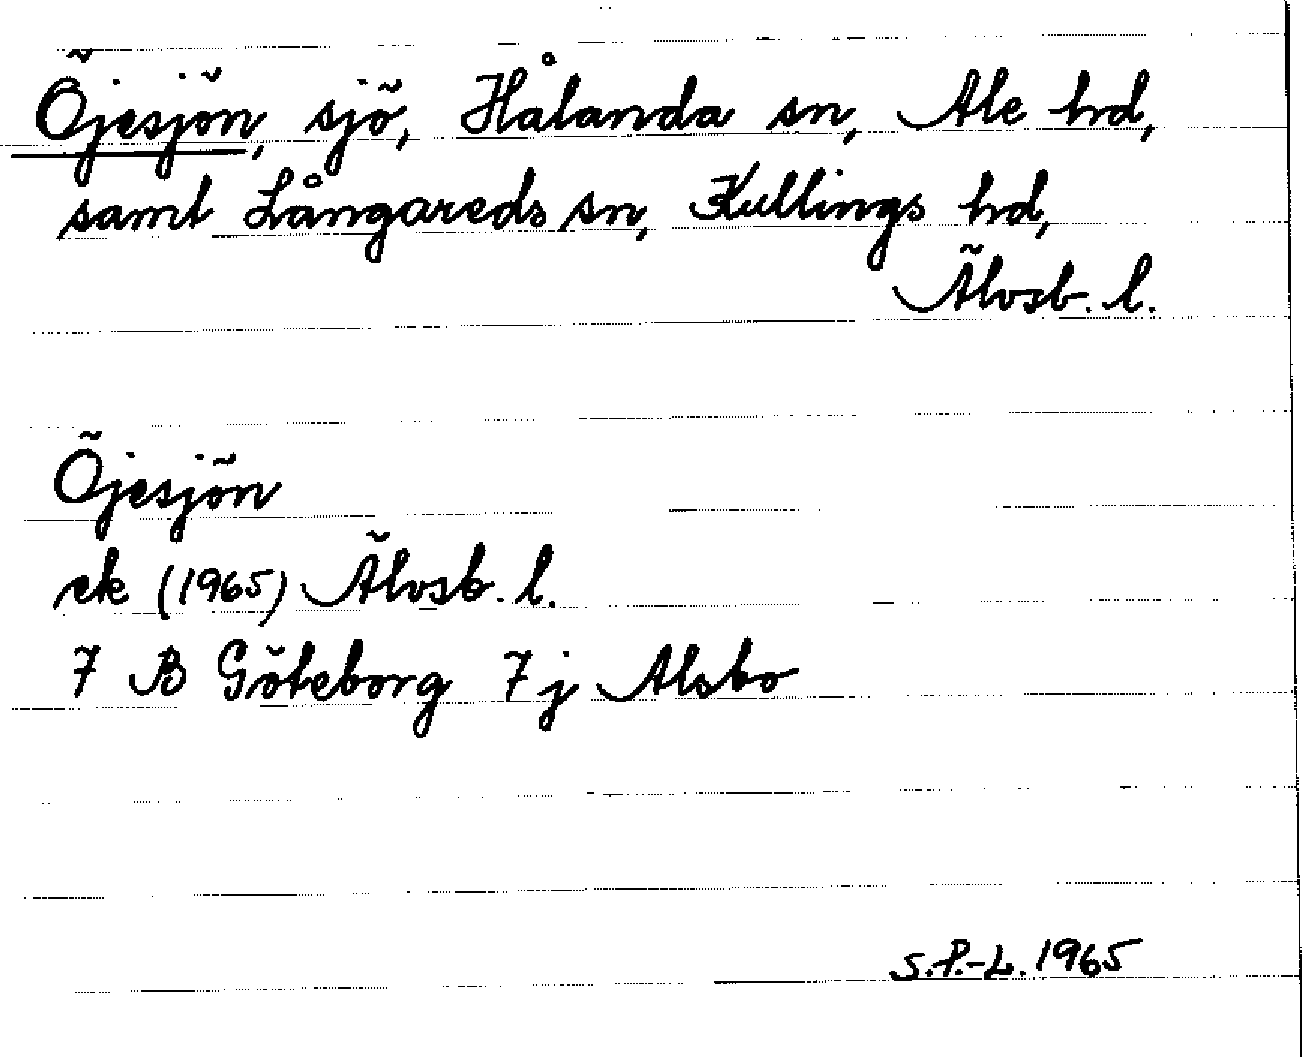 Öjesjön, sjö, Hålanda sn, Ale hd,
samt Långareds sn, Kullings hd,
Älvsb. l.
Öjesjön
ek (1965) Älvsb. l.
7 B Göteborg 7j Alsbo
S.P.-L. 1965